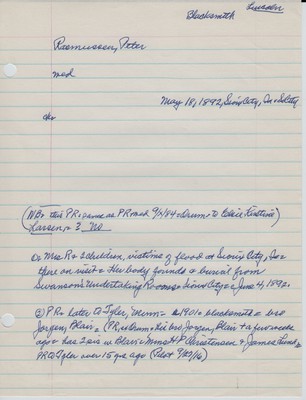 Blacksmith Larsen
Rasmussen, Peter
med
May 18, 1892, Sioux City, Ia
(NB: this PR = same as PR med 9/2/84 = Drum to Blair Kirstine
Larsen, = ? No
Mrs R + children, victims of flood at Sioux City, Ia =
there on visit = Her body found = burial from
Swanson's Undertaking Rooms = Sioux City = June 4, 1892.
② PR = later @ Tyler, Minn = 1901 = blacksmith = bro
Jorgen, Blair = (PR, & bro Jorgen, Blair = a few weeks
ago = has 2 sis in Blair = Mmes H P Christensen & James Lund =
PR @ Tyler over 15 yrs ago (Pilot 9/20/16)